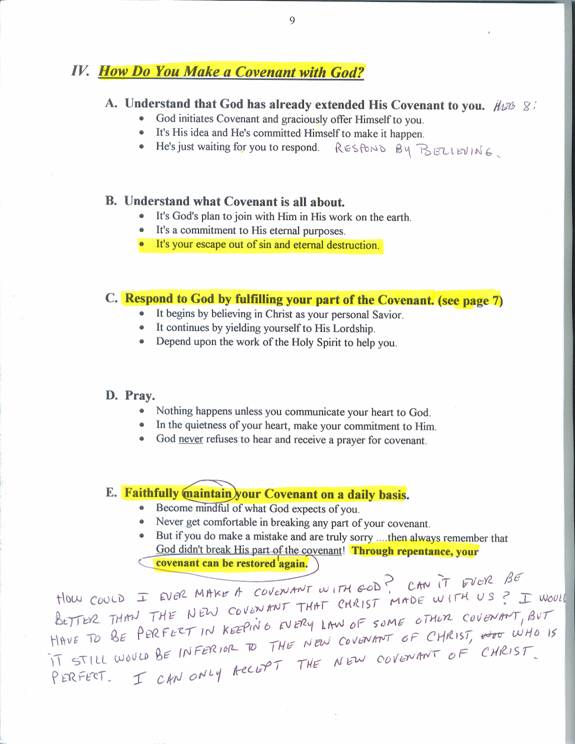 9
IV. How Do You Make a Covenant with God?
A. Understand that God has already extended His Covenant to you. HEB 8:
• God initiates Covenant and graciously offer Himself to you.
• It's His idea and He's committed Himself to make it happen.
• He's just waiting for you to respond. RESPOND BY BELIEVING.
B. Understand what Covenant is all about.
• It's God's plan to join with Him in His work on the earth.
• It's a commitment to His eternal purposes.
• It's your escape out of sin and eternal destruction.
C. Respond to God by fulfilling your part of the Covenant. (see page 7)
• It begins by believing in Christ as your personal Savior.
• It continues by yielding yourself to His Lordship.
• Depend upon the work of the Holy Spirit to help you.
D. Pray.
• Nothing happens unless you communicate your heart to God.
• In the quietness of your heart, make your commitment to Him.
• God never refuses to hear and receive a prayer for covenant.
E. Faithfully maintain your Covenant on a daily basis.
• Become mindful of what God expects of you.
• Never get comfortable in breaking any part of your covenant.
• But if you do make a mistake and are truly sorry ....then always remember that
God didn't break His part of the covenant! Through repentance, your
covenant can be restored again.
HOW COULD I EVER MAKE A COVENANT WITH GOD? CAN IT EVER BE
BETTER THAN THE NEW COVENANT THAT CHRIST MADE WITH US? I WOULD
HAVE TO BE PERFECT IN KEEPING EVERY LAW OF SOME OTHER COVENANT, BUT
IT STILL WOULD BE INFERIOR TO THE NEW COVENANT OF CHRIST, WHO IS
PERFECT. I CAN ONLY ACCEPT THE NEW COVENANT OF CHRIST.